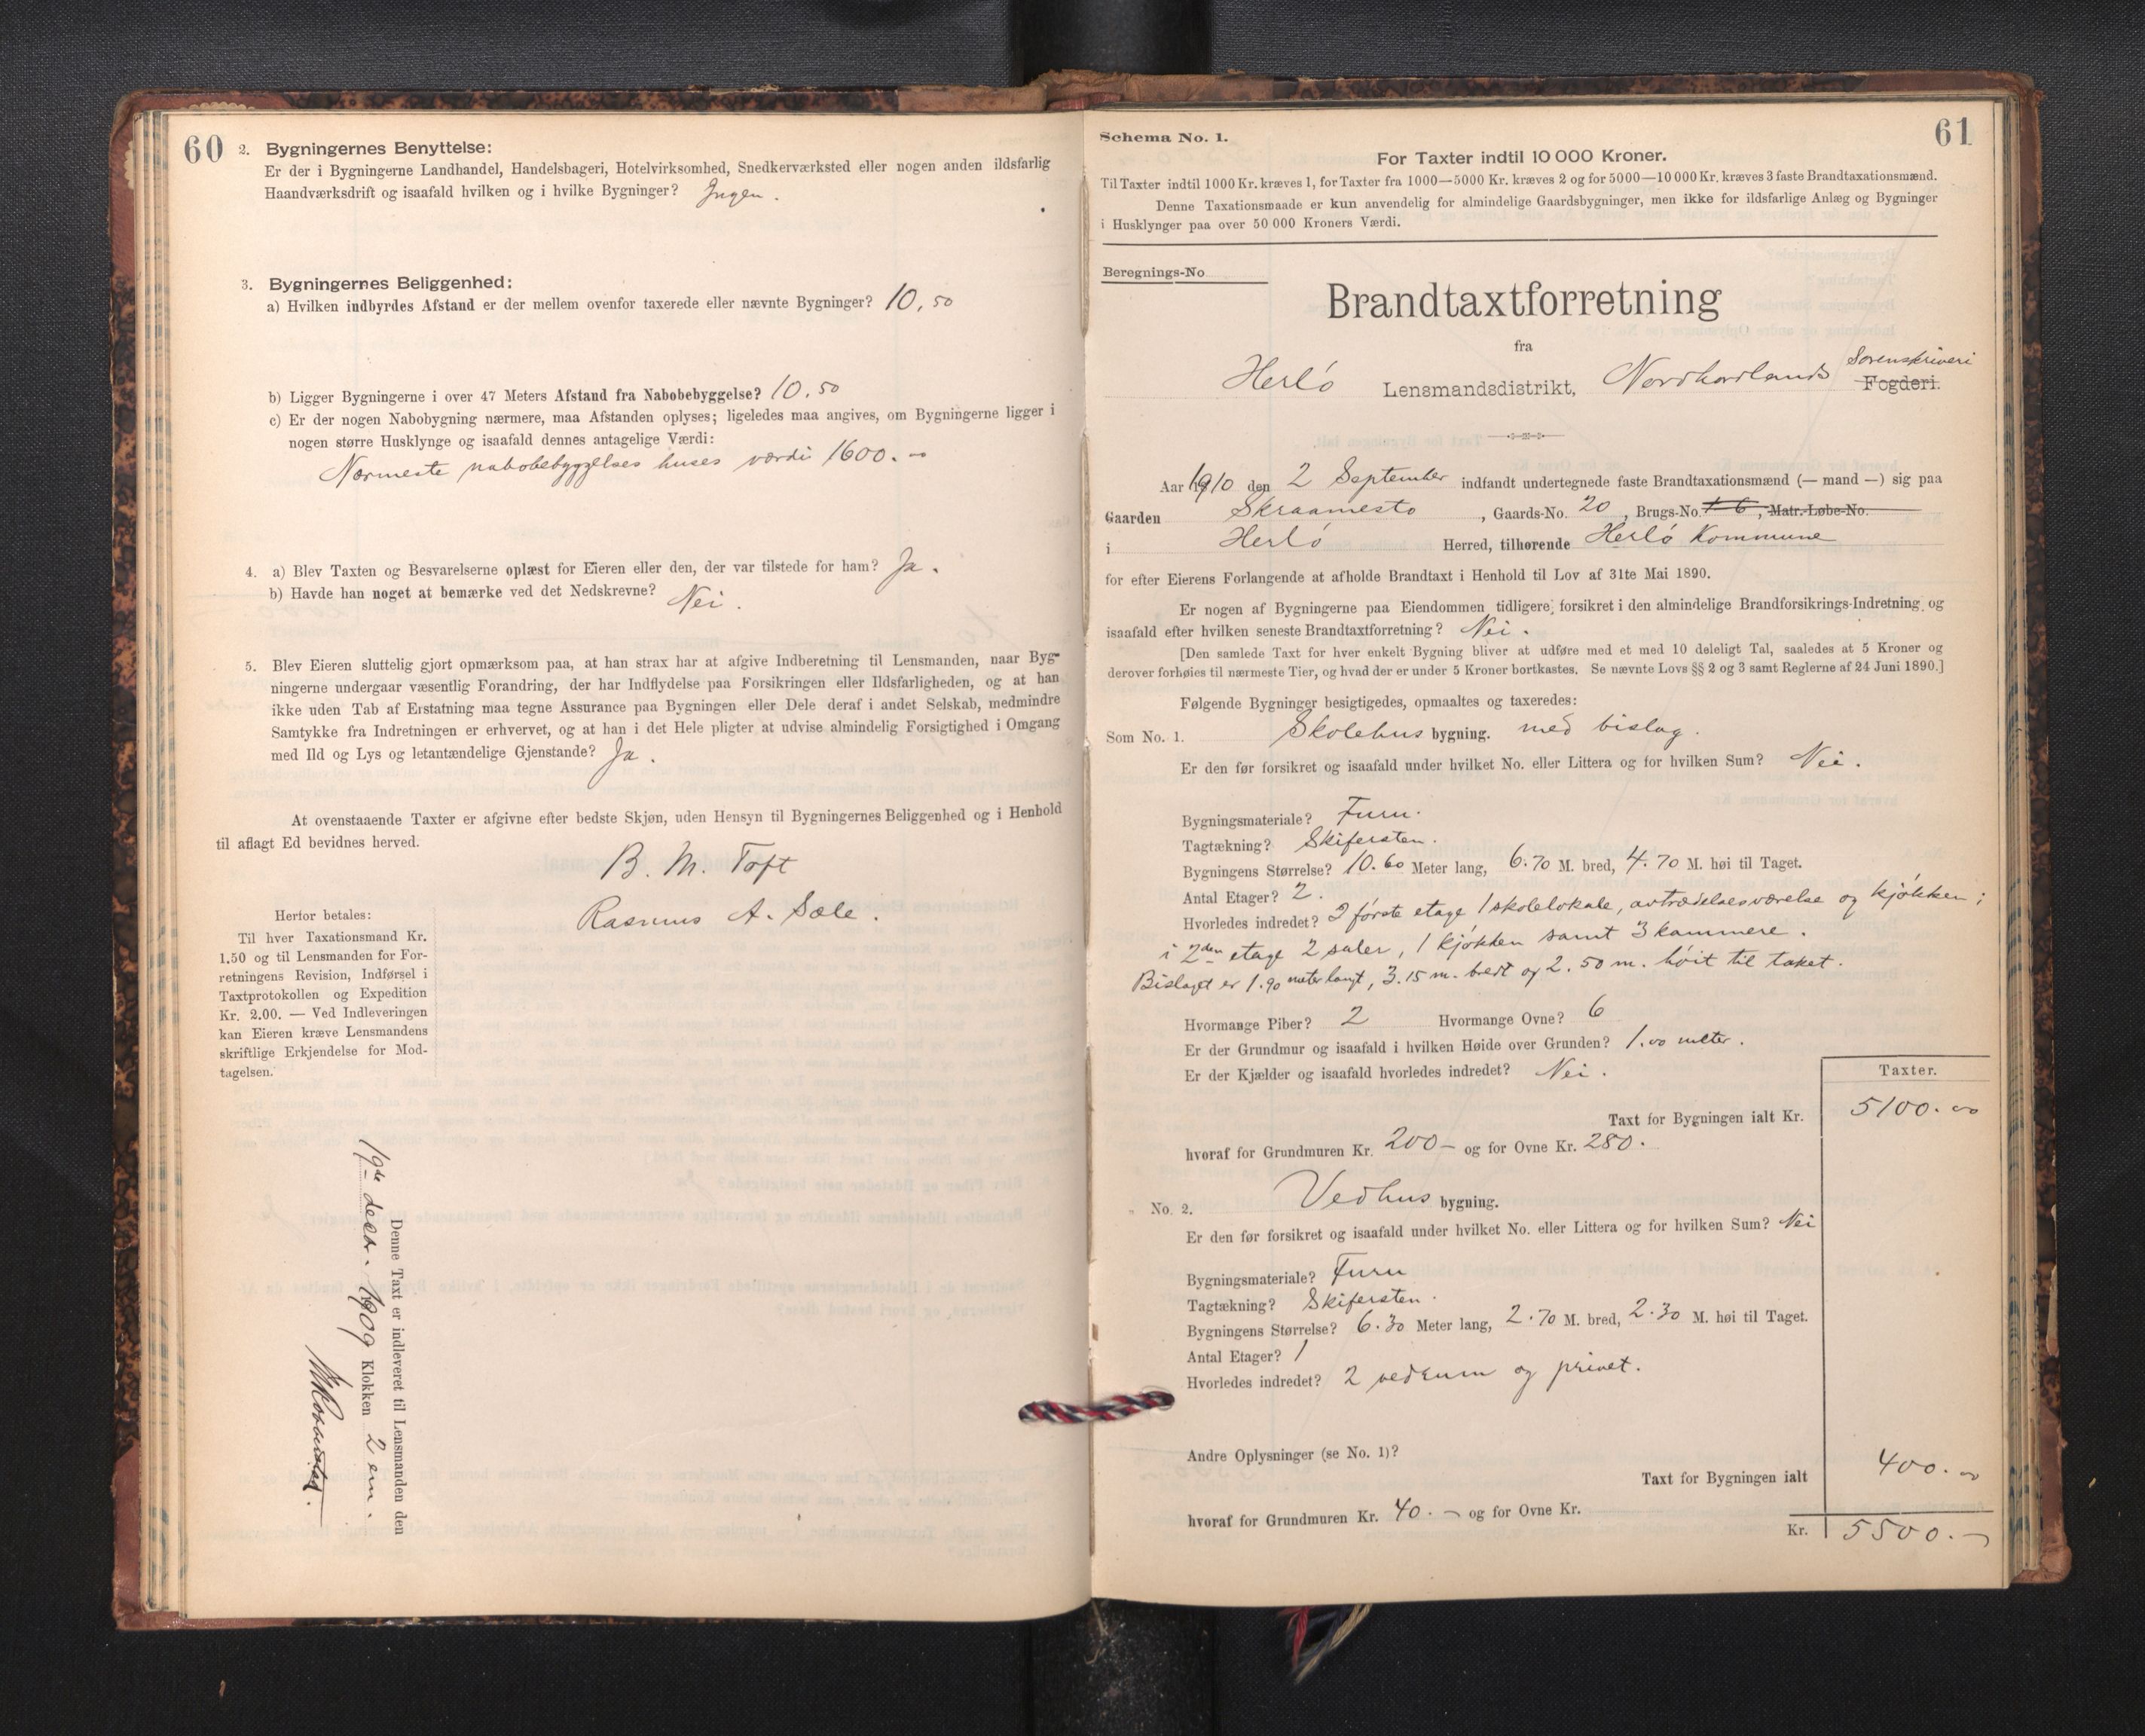 60
2. Bygningernes Benyttelse:
Er der i Bygningerne Landhandel, Handelsbageri, Hotelvirksomhed, Snedkerværksted eller nogen anden ildsfarlig
Haandværksdrift og isaafald hvilken og i hvilke Bygninger? Ingen.
3. Bygningernes Beliggenhed:
a) Hvilken indbyrdes Afstand er der mellem ovenfor taxerede eller nævnte Bygninger? 10,50
b) Ligger Bygningerne i over 47 Meters Afstand fra Nabobebyggelse? 10.50
c) Er der nogen Nabobygning nærmere, maa Afstanden oplyses; ligeledes maa angives, om Bygningerne ligger i
nogen større Husklynge og isaafald dennes antagelige Værdi:
Nærmeste nabobebyggelses huses værdi 1600.-
4. a) Blev Taxten og Besvarelserne oplæst for Eieren eller den, der var tilstede for ham? Ja.
b) Havde han noget at bemærke ved det Nedskrevne? Nei.
5. Blev Eieren sluttelig gjort opmærksom paa, at han strax har at afgive Indberetning til Lensmanden, naar Byg-
ningerne undergaar væsentlig Forandring, der har Indflydelse paa Forsikringen eller Ildsfarligheden, og at han
ikke uden Tab af Erstatning maa tegne Assurance paa Bygningen eller Dele deraf i andet Selskab, medmindre
Samtykke fra Indretningen er erhvervet, og at han i det Hele pligter at udvise almindelig Forsigtighed i Omgang
med Ild og Lys og letantændelige Gjenstande? Ja.
At ovenstaaende Taxter er afgivne efter bedste Skjøn, uden Hensyn til Bygningernes Beliggenhed og i Henhold
til aflagt Ed bevidnes herved.
B. M. Toft
Rasmus A. Sæle.
Herfor betales:
Til hver Taxationsmand Kr.
1.50 og til Lensmanden for For-
retningens Revision, Indførsel i
Taxtprotokollen og Expedition
Kr. 2.00. — Ved Indleveringen
kan Eieren kræve Lensmandens
skriftlige Erkjendelse for Mod-
tagelsen.
Denne Taxt er indleveret til Lensmanden den
19de decbr. 1909 Klokken 2 em.
61
Schema No. 1.
For Taxter indtil 10 000 Kroner.
Til Taxter indtil 1000 Kr. kræves 1, for Taxter fra 1000—5000 Kr. kræves 2 og for 5000—10 000 Kr. kræves 3 faste Brandtaxationsmænd.
Denne Taxationsmaade er kun anvendelig for almindelige Gaardsbygninger, men ikke for ildsfarlige Anlæg og Bygninger
i Husklynger paa over 50 000 Kroners Værdi.
Beregnings-No
Brandtaxtforretning
fra
Herlö Lensmandsdistrikt, Nordhordlands Sorenskriveri Fogderi.
Aar 1910 den 2 September indfandt undertegnede faste Brandtaxationsmænd (— mand —) sig paa
Gaarden Skraamesto, Gaards-No. 20, Brugs-No. 16, Matr.-Løbe-No.
i Herlö Herred, tilhørende Herlö Kommune
for efter Eierens Forlangende at afholde Brandtaxt i Henhold til Lov af 31te Mai 1890.
Er nogen af Bygningerne paa Eiendommen tidligere forsikret i den almindelige Brandforsikrings-Indretning og
isaafald efter hvilken seneste Brandtaxtforretning? Nei.
[Den samlede Taxt for hver enkelt Bygning bliver at udføre med et med 10 deleligt Tal, saaledes at 5 Kroner og
derover forhøies til nærmeste Tier, og hvad der er under 5 Kroner bortkastes. Se nævnte Lovs §§ 2 og 3 samt Reglerne af 24 Juni 1890.]
Følgende Bygninger besigtigedes, opmaaltes og taxeredes:
Som No. 1. Skolehus bygning. med bislag.
Er den før forsikret og isaafald under hvilket No. eller Littera og for hvilken Sum? Nei.
Bygningsmateriale? Furu.
Tagtækning? Skifersten.
Bygningens Størrelse? 10.60 Meter lang, 6.70 M. bred, 4.70 M. høi til Taget.
Antal Etager? 2.
Hvorledes indredet? I förste etage 1 skolelokale, avtrædelsesværelse og kjökken;
i 2den etage 2 saler, 1 kjökken samt 3 kammere.
Bislaget er 1.90 meter langt, 3.15 m. bredt og 2.50 m. höit til taket.
Hvormange Piber? 2 Hvormange Ovne? 6
Er der Grundmur og isaafald i hvilken Høide over Grunden? 1.00 meter.
Er der Kjælder og isaafald hvorledes indredet? Nei.
Taxter.
Taxt for Bygningen ialt Kr. 5100.00
hvoraf for Grundmuren Kr. 200- og for Ovne Kr. 280.
No. 2. Vedhus bygning.
Er den før forsikret og isaafald under hvilket No. eller Littera og for hvilken Sum? Nei
Bygningsmateriale? Furu
Tagtækning? Skifersten.
Bygningens Størrelse? 6.30 Meter lang, 2.70 M. bred, 2.30 M. høi til Taget.
Antal Etager? 1
Hvorledes indredet? 2 vedrum og privet.
Andre Oplysninger (se No. 1)?
Taxt for Bygningen ialt 400.00
hvoraf for Grundmuren Kr. 40.- og for Ovne Kr.
Kr. 5500.-